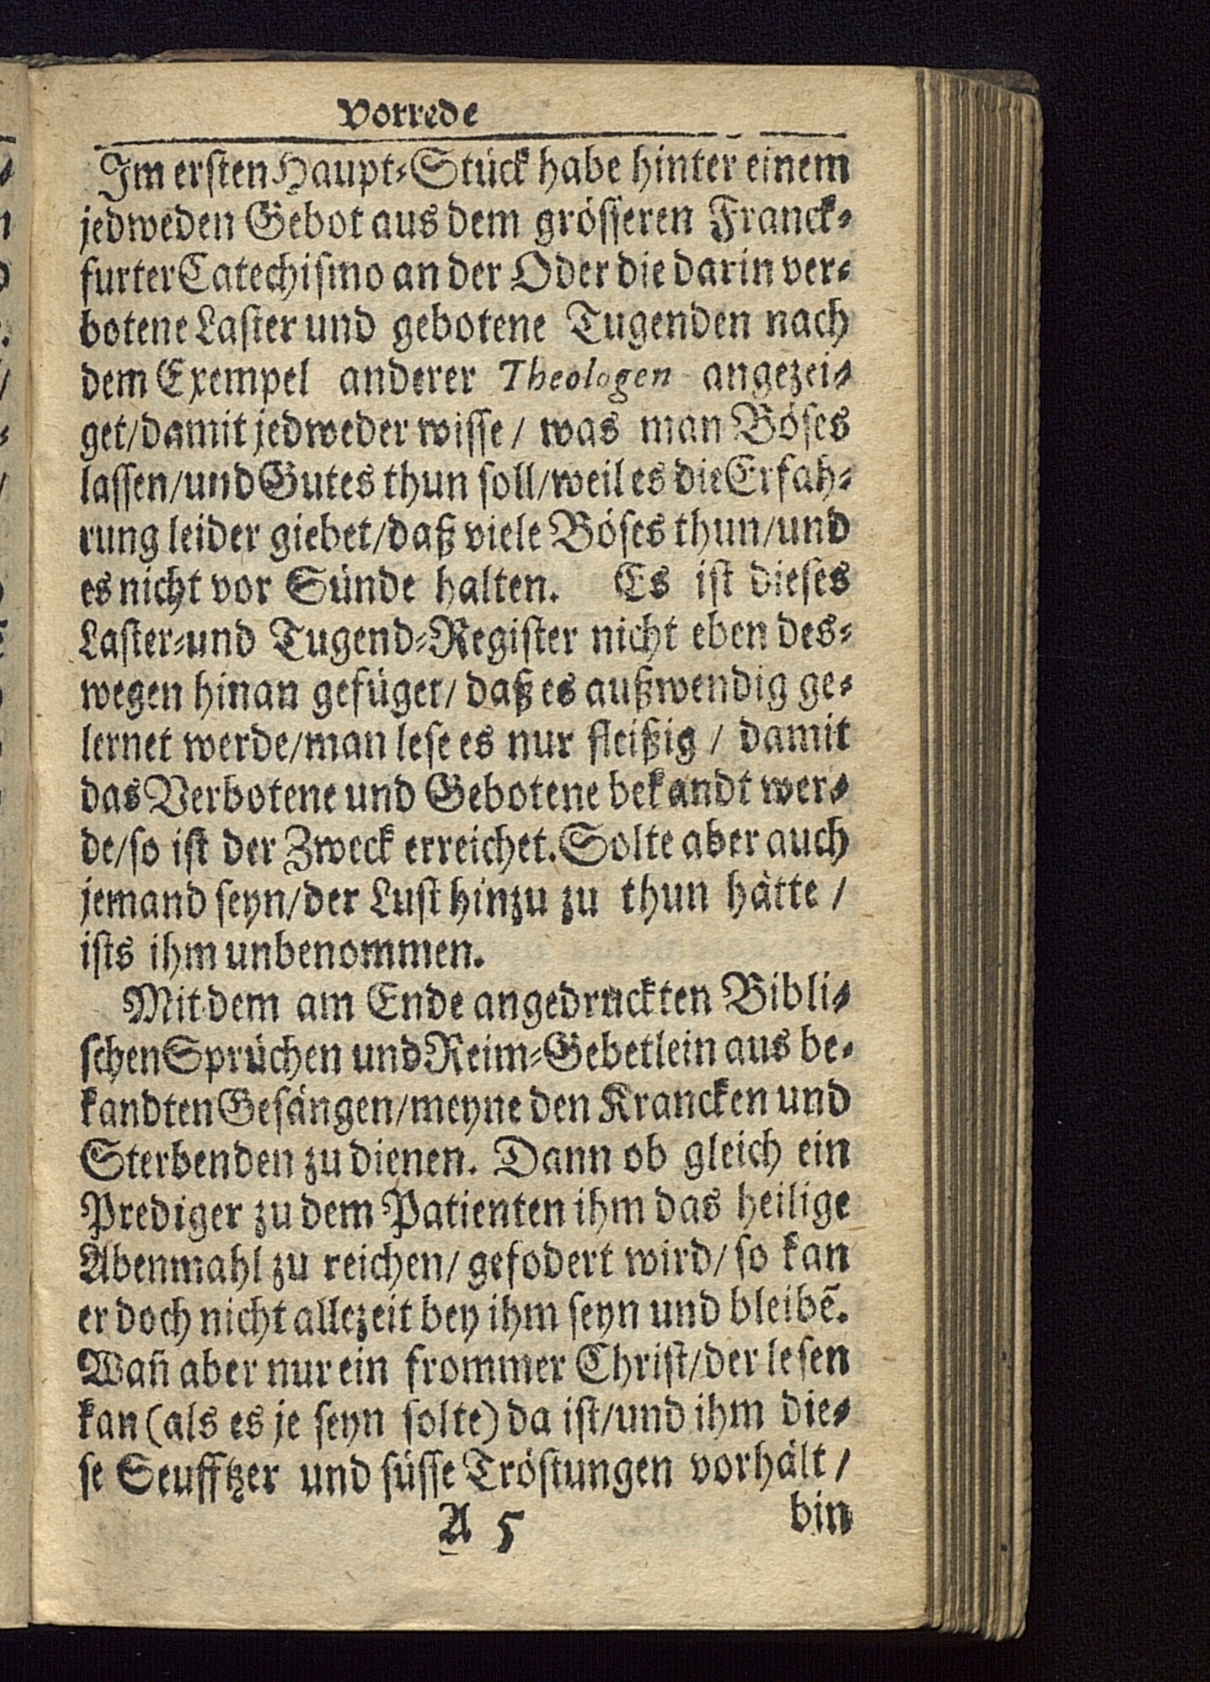 Vorrede
Im ersten Haupt-Stück habe hinter einem
jedweden Gebot aus dem grösseren Franck-
furter Catechismo an der Oder die darin ver-
botene Laster und gebotene Tugenden nach
dem Exempel anderer Theologen angezei-
get/damit jedweder wisse / was man Böses
lassen/und Gutes thun soll/weil es die Erfah-
rung leider giebet/daß viele Böses thun/und
es nicht vor Sünde halten. Es ist dieses
Laster-und Tugend-Register nicht eben des-
wegen hinan gefüget/ daß es außwendig ge-
lernet werde/man lese es nur fleißig / damit
das Verbotene und Gebotene bekandt wer-
de/so ist der Zweck erreichet. Solte aber auch
jemand seyn/der Lust hinzu zu thun hätte /
ists ihm unbenommen.
Mit dem am Ende angedruckten Bibli-
schen Sprüchen und Reim-Gebetlein aus be-
kandten Gesängen/meyne den Krancken und
Sterbenden zu dienen. Dann ob gleich ein
Prediger zu dem Patienten ihm das heilige
Abenmahl zu reichen/ gefodert wird/ so kan
er doch nicht allezeit bey ihm seyn und bleibẽ.
Wañ aber nur ein frommer Christ/der lesen
kan (als es je seyn solte) da ist/und ihm die-
se Seufftzer und süsse Tröstungen vorhält /
A 5 bin